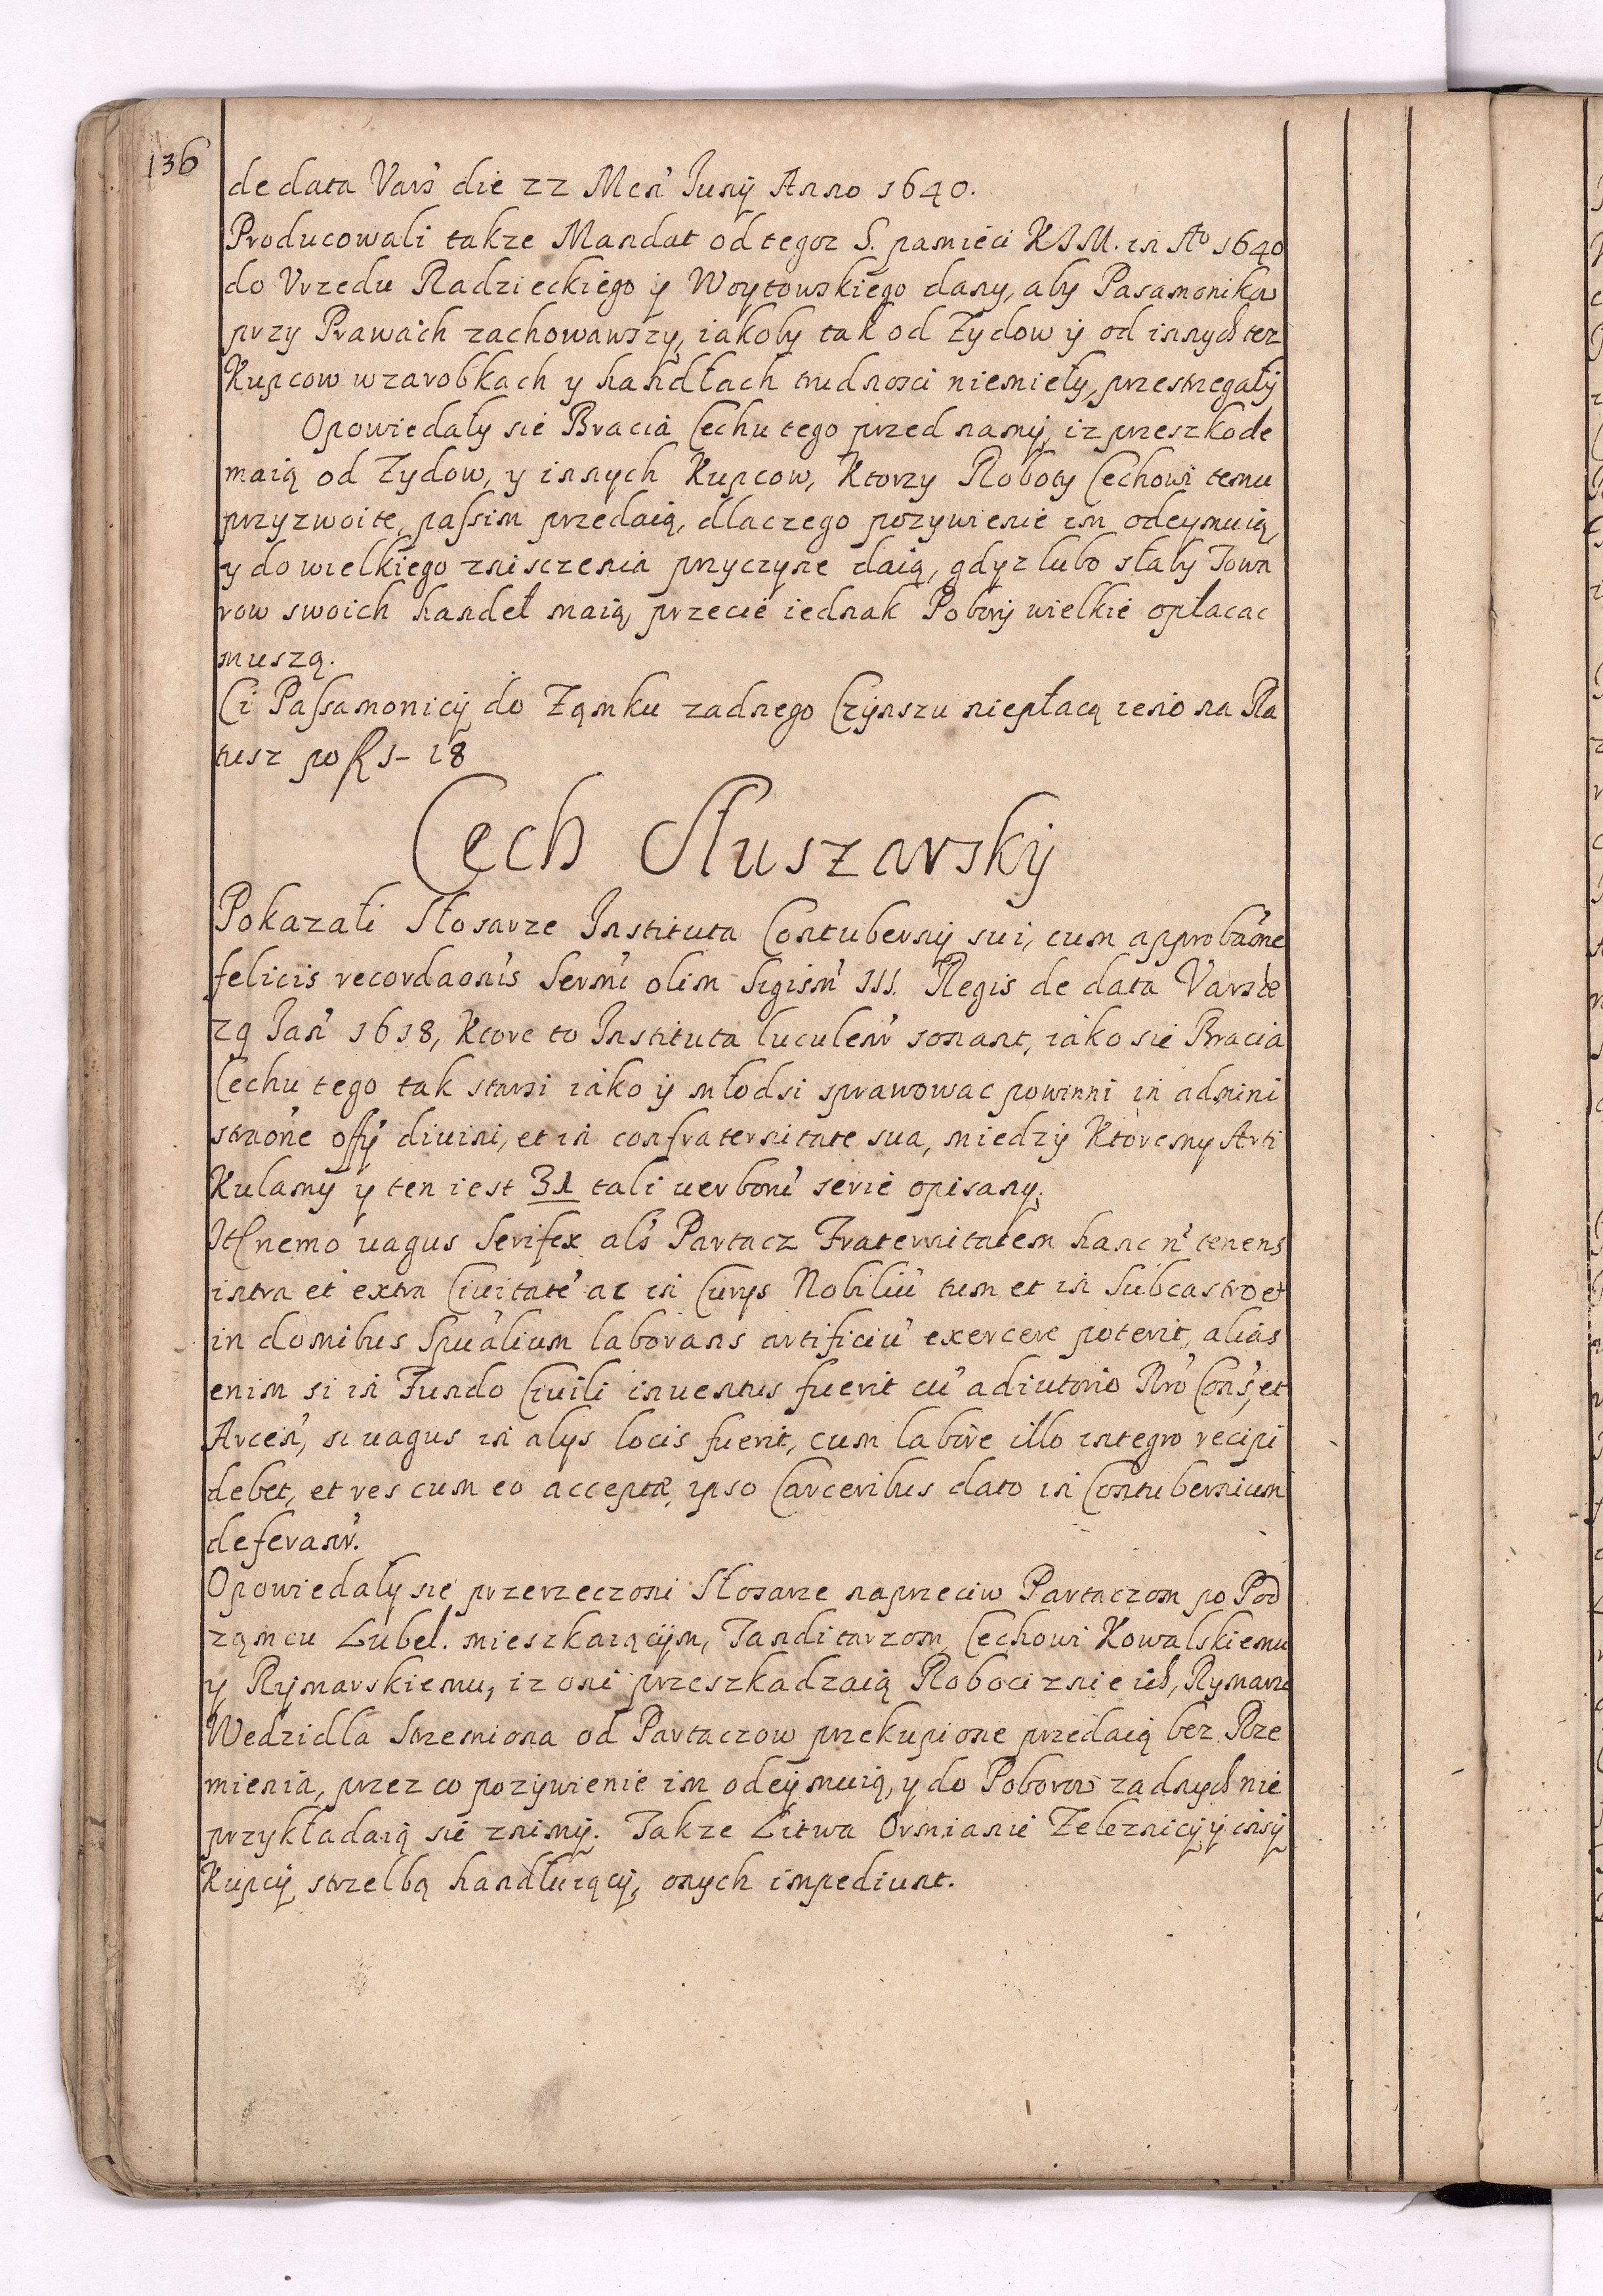 136
de data Vars' die 22 Men' Iunÿ Anno 1640.
Producowali takze Mandat od tegoz S. pamieci KJM. in A° 1640
do Vrzedu Radzieckiego ÿ Woytowskiego dany, aby Pasamonikow
przy Prawach zachowawszy, iakoby tak od Zydow ÿ od innych tez
Kupcow w zarobkach y handłach trudnosci niemieły, przestrzegałÿ
Opowiedały sie Bracia Cechu tego przed namÿ, iz przeszkode
maią od Zydow, y innych Kupcow, Ktorzy Roboty Cechowi temu
przyzwoite, passim przedaią, dlaczego pozywienie im odeymuią,
y do wielkiego znisczenia przyczyne daią, gdyz lubo słaby Towa
row swoich handel maią, przecie iednak Poborÿ wielkie opłacac
muszą.
Ci Passamonicÿ do Zamku zadnego Czÿnszu niepłacą ieno na Ra
tusz po f 1 - 18
Cech Sluszarskÿ
Pokazali Słosarze Instituta Contubernÿ sui, cum approbaōne
felicis recordaonis Sermi olim Sigism' III. Regis de data Varsie
29 Jan' 1618, Ktore to Instituta luculentr sonant, iako sie Bracia
Cechu tego tak starsi iako ÿ młodsi sprawowac powinni in admini
straōne offÿ diuini, et in confraternitate sua, miedzÿ Ktoremy Arti
Kulamÿ y ten iest 31 tali uerborū serie opisany.
Itē nemo uagus Serifex als Partacz Fraternitatem hanc n' tenens
intra et extra Ciuitatē ac in Curys Nobiliū tum et in Subcastro et
in domibus Spūalium laborans artificiū exercere poterit, alias
enim si in Fundo Ciuili inuentus fuerit cū adiutorio Pro Cons, et
Arcen', si uagus in alys locis fuerit, cum labōre illo integro recipi
debet, et res cum eo acceptæ, ipso Carceribus dato in Contubernium
deferantr.
Opowiedały sie przerzeczoni Słosarze naprzeciw Partaczom po Pod
zamcu Lubel. mieszkaiącÿm, Tanditarzom, Cechowi Kowalskiemu
y Rÿmarskiemu, iz oni przeszkadzaią Robociznie ich, Rymarze
Wedzidla Strzemiona od Partaczow przekupione przedaią bez Rze
mienia, przez co pozÿwienie im odeÿmuią, y do Poborow zadnych nie
przykładaią sie znimÿ. Takze Litwa Ormianie Zeleznicÿ ÿ insÿ
Kupcÿ strzelbą handluiącÿ, onych impediunt.